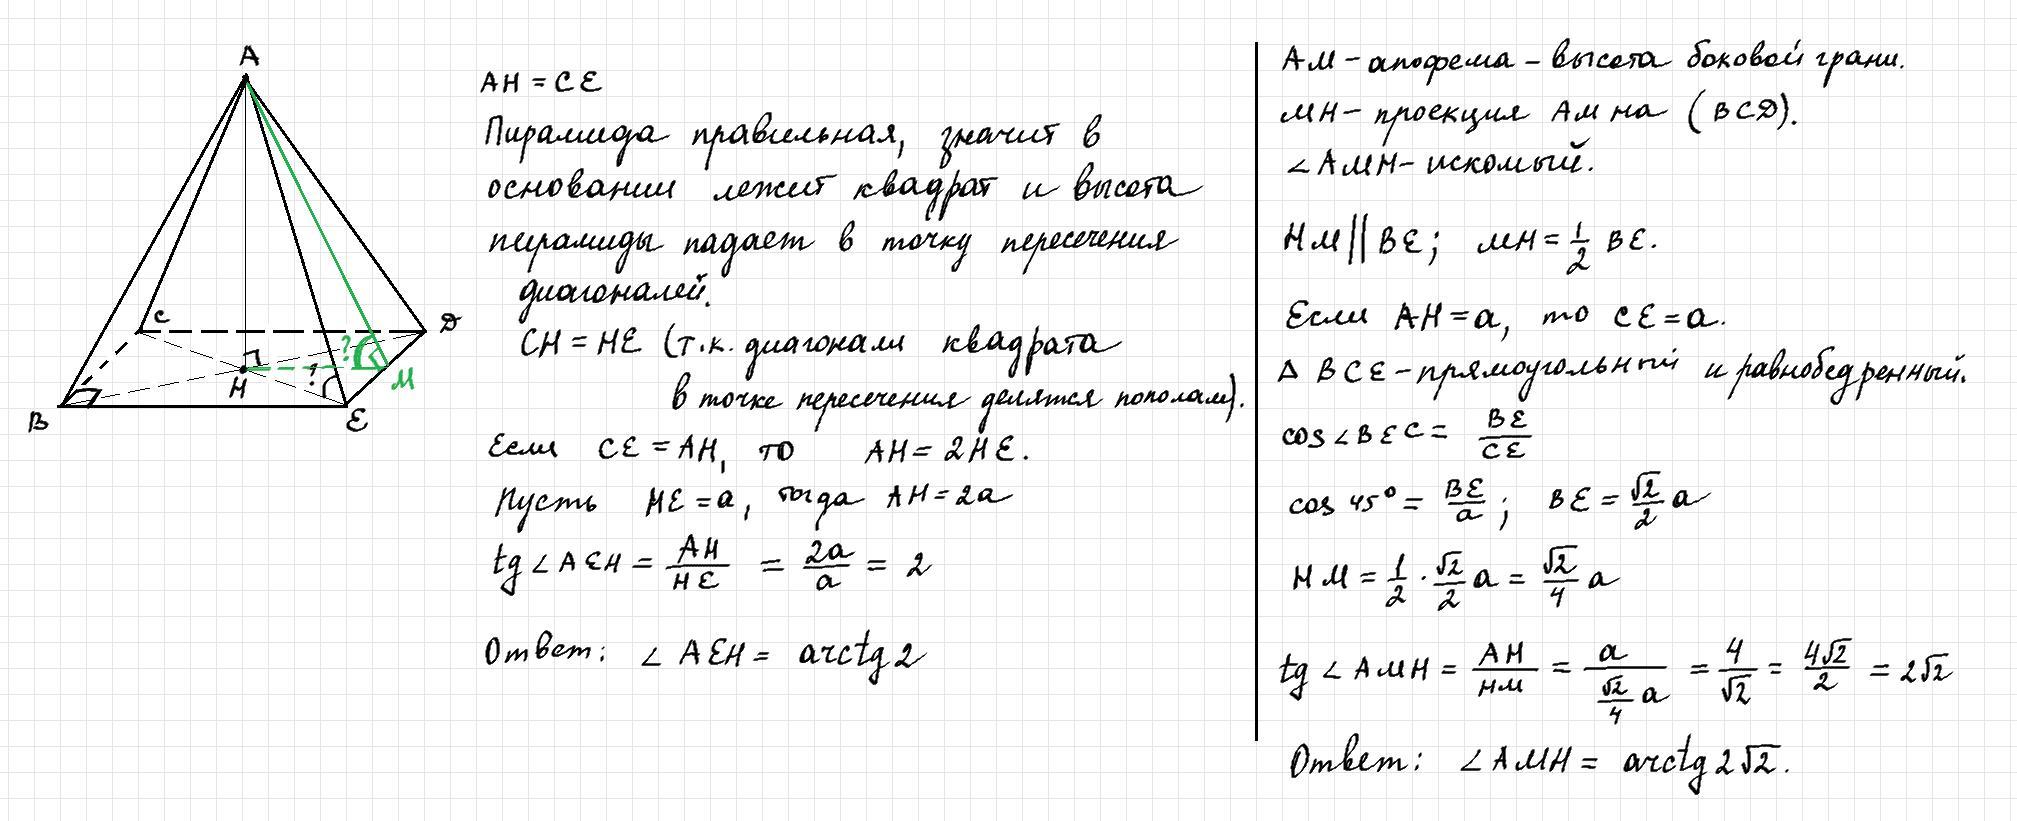 A
C
D
H
M
B
E
?
?
AH = CE
Пирамида правильная, значит в
основании лежит квадрат и высота
пирамиды падает в точку пересечения
диагоналей.
CH = HE (т.к. диагонали квадрата
в точке пересечения делятся пополам).
Если CE = AH, то AH = 2HE.
Пусть HE = a, тогда AH = 2a
tg ∠AEH = AH/HE = 2a/a = 2
Ответ: ∠AEH = arctg 2
AM – апофема – высота боковой грани.
MH – проекция AM на (BCD).
∠AMH – искомый.
HM || BE; MH = 1/2 BE.
Если AH = a, то CE = a.
Δ BCE – прямоугольный и равнобедренный.
cos ∠BEC = BE/CE
cos 45° = BE/a; BE = √2/2 a
HM = 1/2 · √2/2 a = √2/4 a
tg ∠AMH = AH/HM = a/(√2/4 a) = 4/√2 = 4√2/2 = 2√2
Ответ: ∠AMH = arctg 2√2.